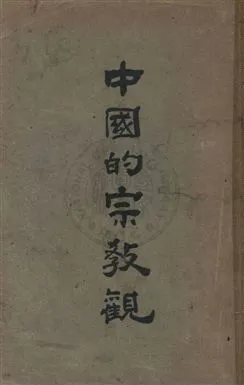 中國的宗教觀